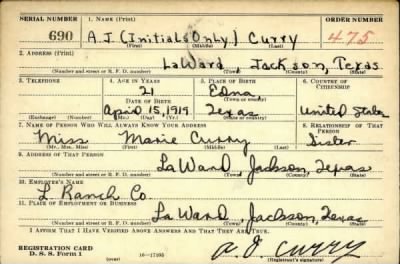 SERIAL NUMBER 1. NAME (Print) ORDER NUMBER
690 A.J. (Initials Only) Curry 475
(First) (Middle) (Last)
2. ADDRESS (Print)
LaWard, Jackson, Texas
(Number and street or R. F. D. number) (Town) (County) (State)
3. TELEPHONE 4. AGE IN YEARS 5. PLACE OF BIRTH 6. COUNTRY OF CITIZENSHIP
21 Edna
DATE OF BIRTH (Town or county)
April 15, 1919 Texas United States
(Exchange) (Number) (Mo.) (Day) (Yr.) (State or country)
7. NAME OF PERSON WHO WILL ALWAYS KNOW YOUR ADDRESS 8. RELATIONSHIP OF THAT PERSON
Miss Marie Curry Sister
(Mr., Mrs., Miss) (First) (Middle) (Last)
9. ADDRESS OF THAT PERSON
LaWard, Jackson, Texas
(Number and street or R. F. D. number) (Town) (County) (State)
10. EMPLOYER'S NAME
L. Ranch Co.
11. PLACE OF EMPLOYMENT OR BUSINESS
LaWard, Jackson, Texas
(Number and street or R. F. D. number) (Town) (County) (State)
I AFFIRM THAT I HAVE VERIFIED ABOVE ANSWERS AND THAT THEY ARE TRUE.
REGISTRATION CARD
D. S. S. Form 1 (over) 16—17105 A. J. Curry
(Registrant's signature)